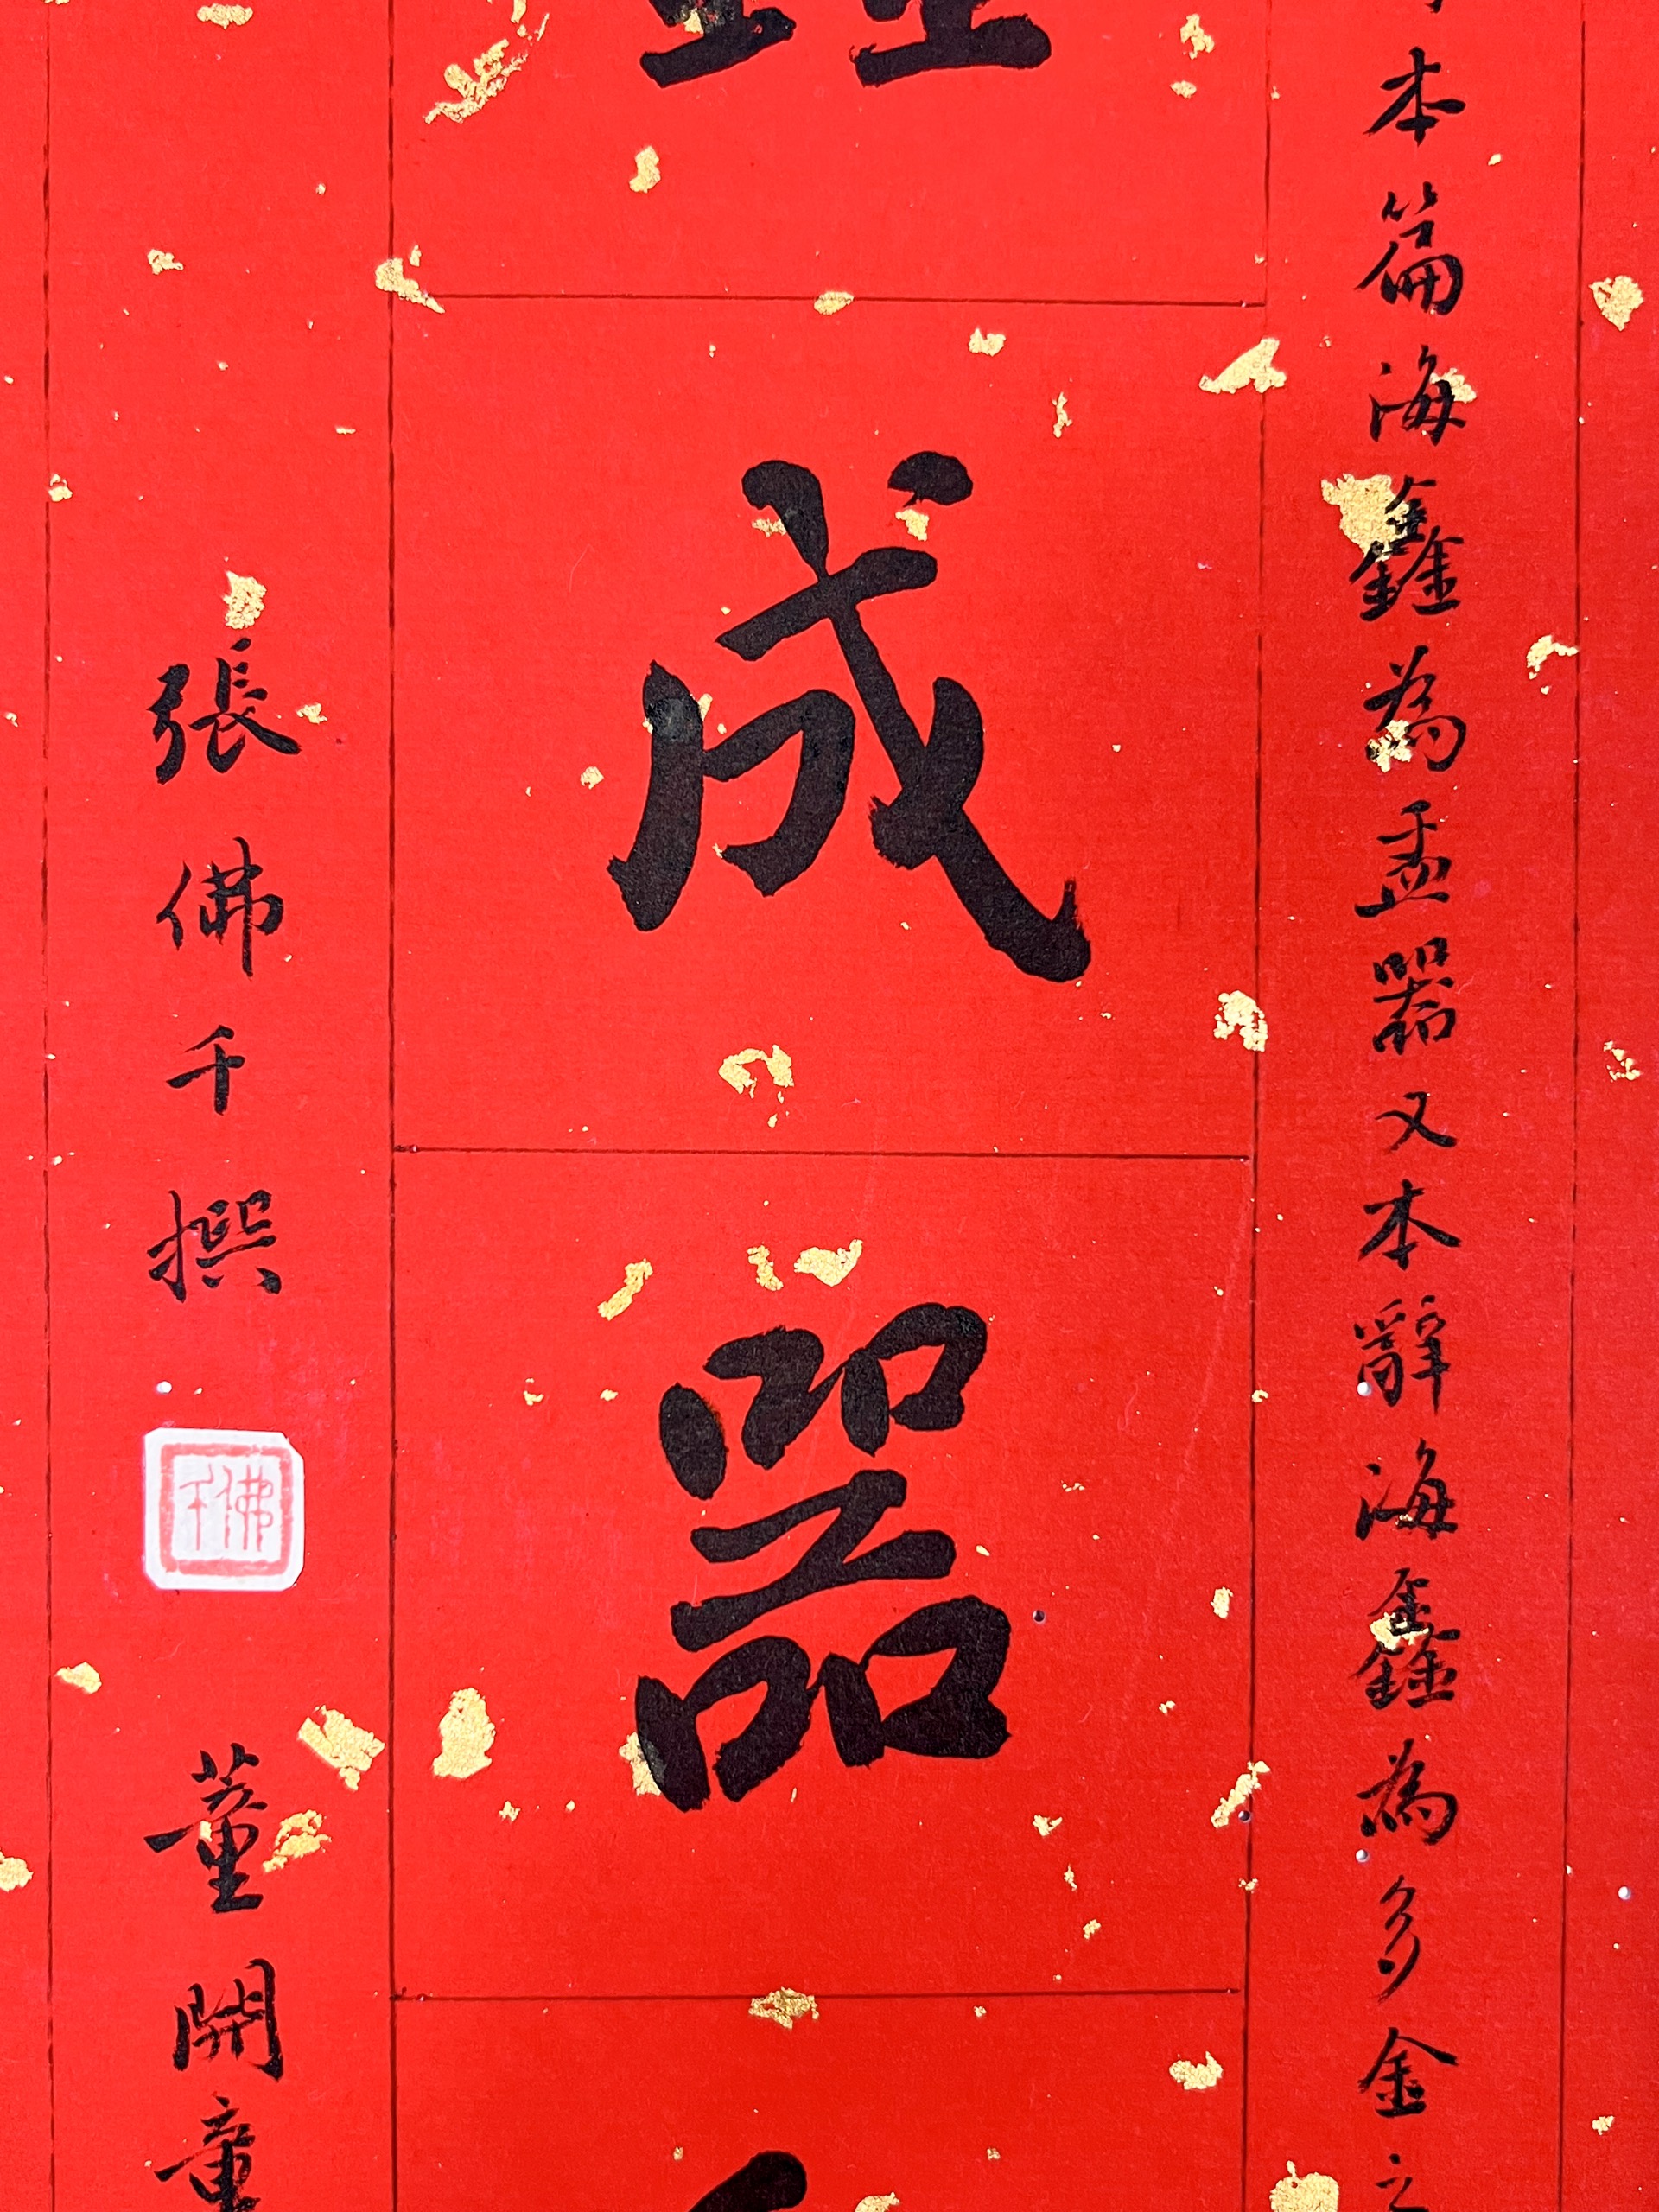 本篇海鑫為盂器又本辭海鑫為多金之
鑫成器
張佛千撰
佛千
董開章